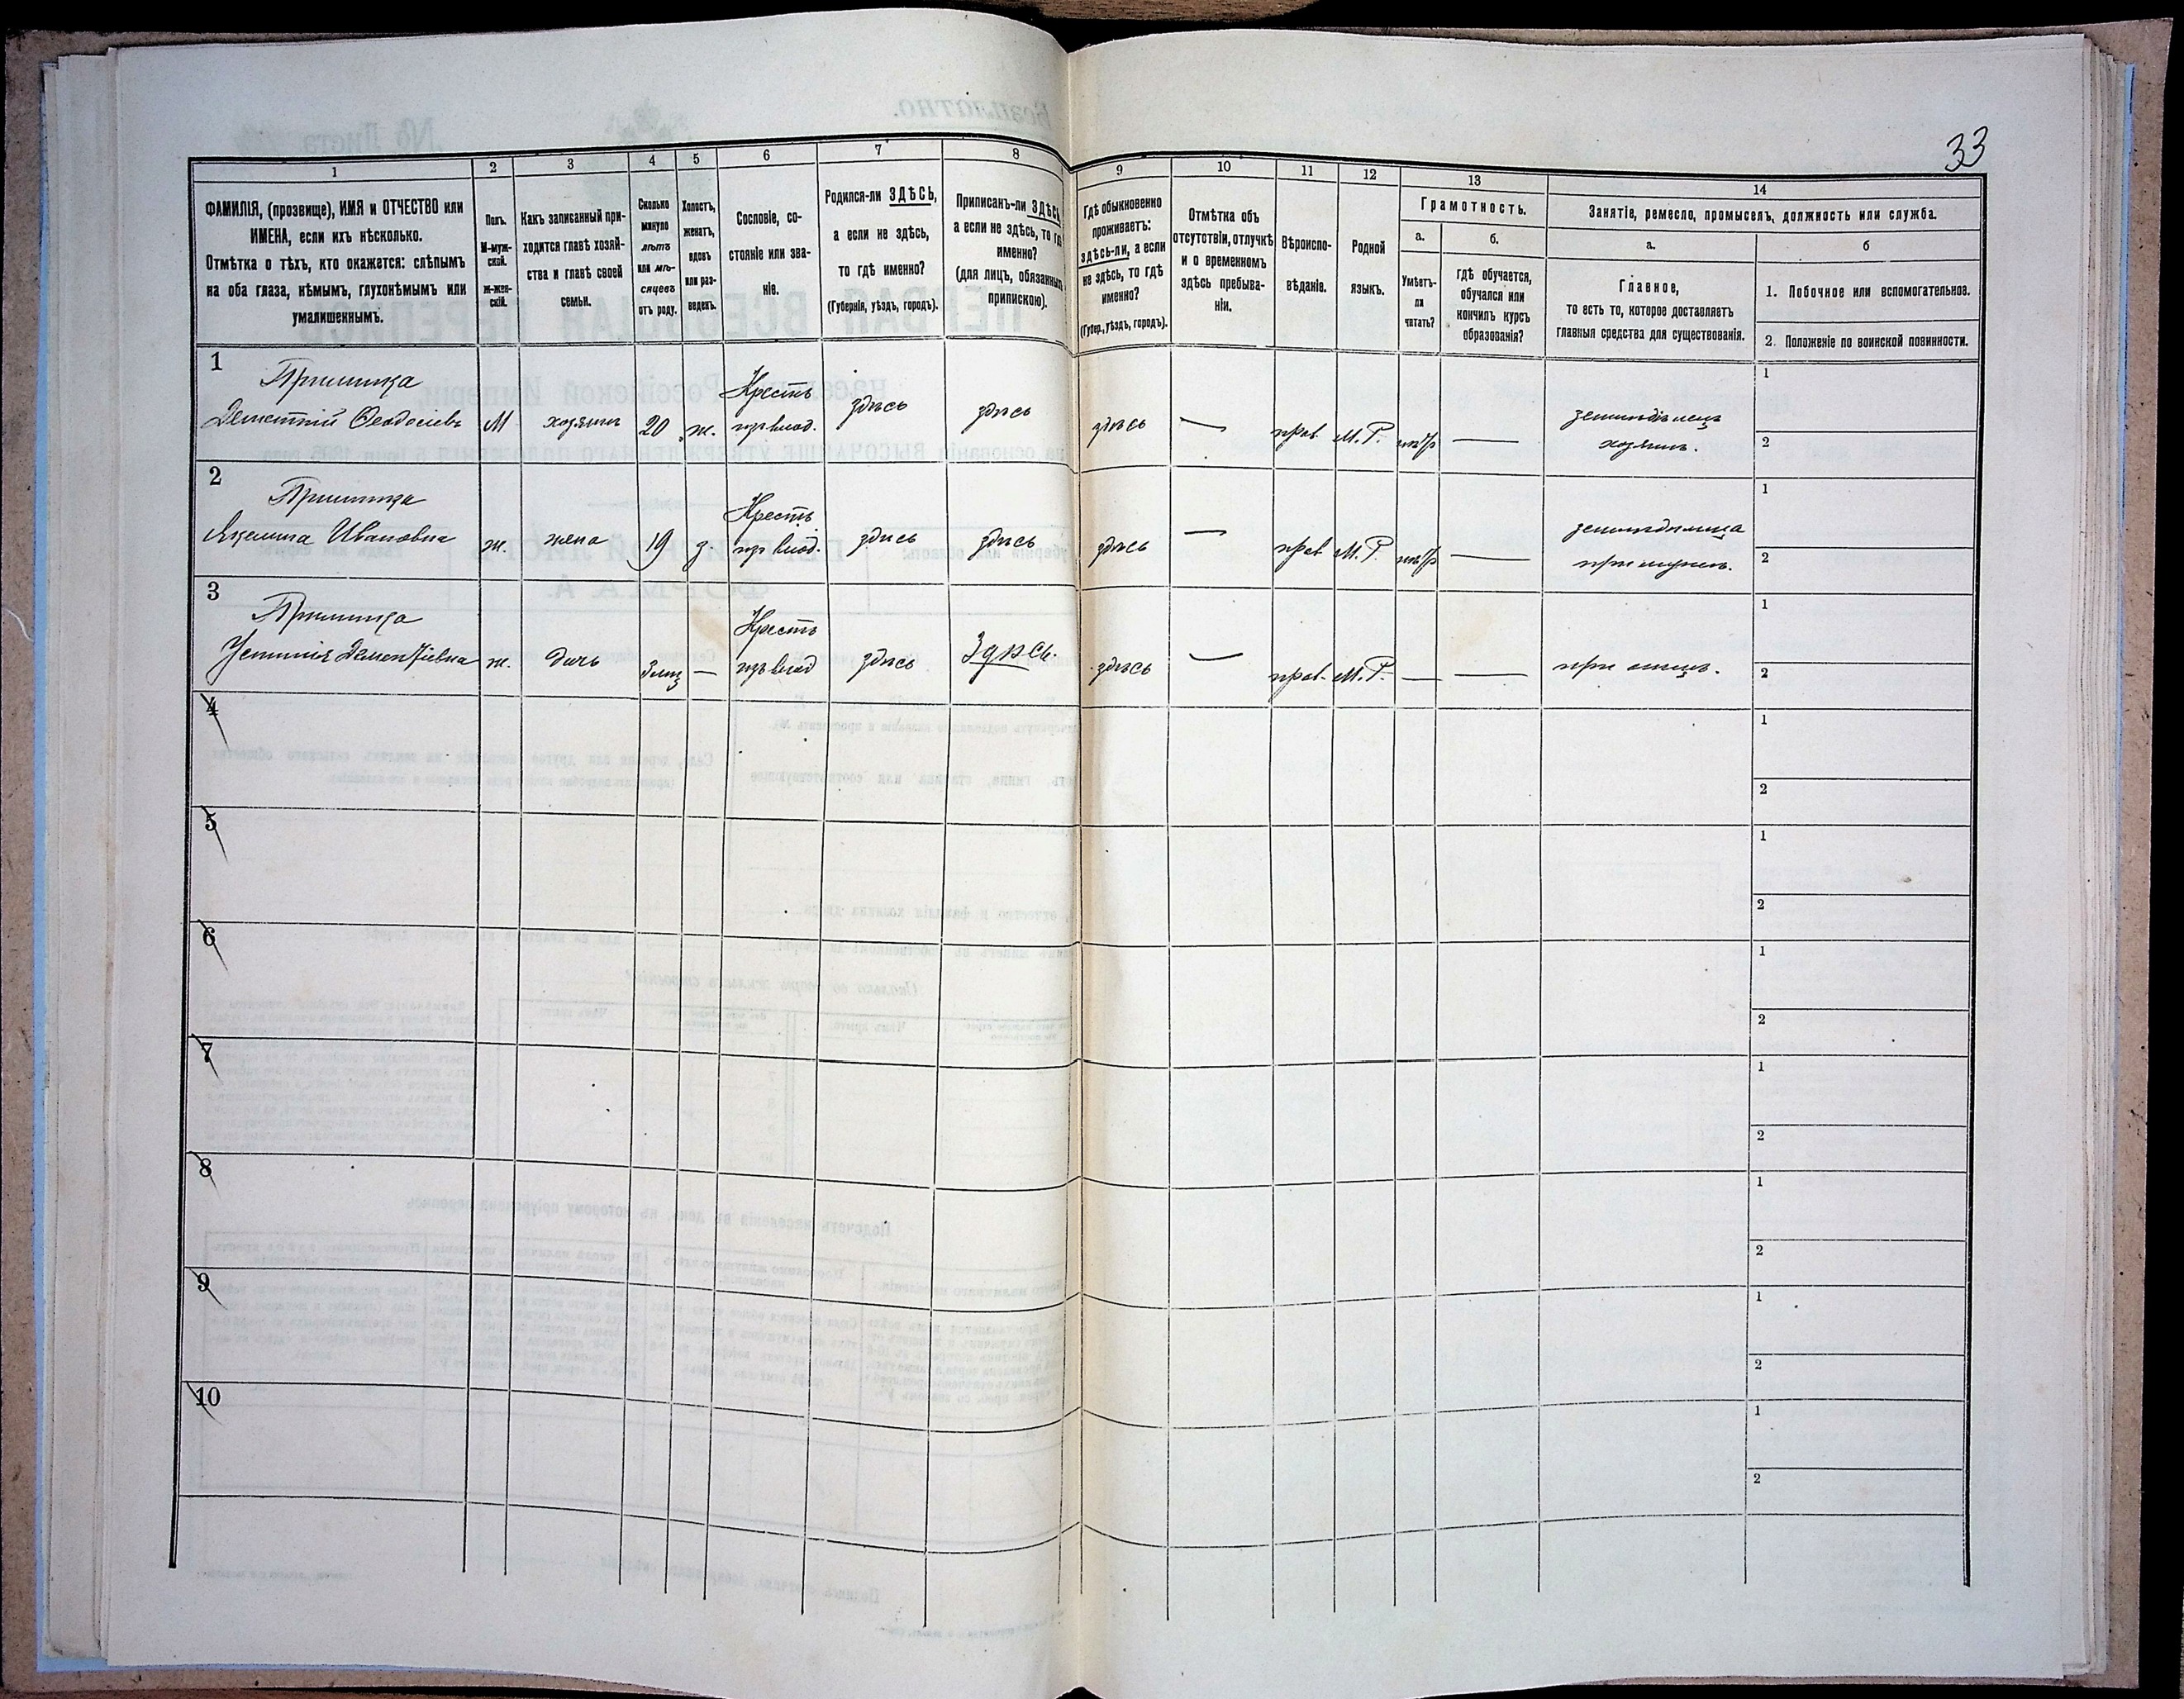 33
1
2
3
4
5
6
7
8
9
10
11
12
13
14
ФАМИЛІЯ, (прозвище), ИМЯ и ОТЧЕСТВО или
ИМЕНА, если ихъ нѣсколько.
Отмѣтка о тѣхъ, кто окажется: слѣпымъ
на оба глаза, нѣмымъ, глухонѣмымъ или
умалишеннымъ.
Полъ.
М-муж-
ской.
ж-жен-
скій.
Какъ записанный при-
ходится главѣ хозяй-
ства и главѣ своей
семьи.
Сколько
минуло
лѣтъ
или мѣ-
сяцевъ
отъ роду.
Холостъ,
женатъ,
вдовъ
или раз-
веденъ.
Сословіе, со-
стояніе или зва-
ніе.
Родился-ли ЗДѢСЬ,
а если не здѣсь,
то гдѣ именно?
(Губернія, уѣздъ, городъ).
Приписанъ-ли ЗДѢСЬ
а если не здѣсь, то гдѣ
именно?
(для лицъ, обязанныхъ
припискою).
Гдѣ обыкновенно
проживаетъ:
здѣсь-ли, а если
не здѣсь, то гдѣ
именно?
(Губер., уѣздъ, городъ).
Отмѣтка объ
отсутствіи, отлучкѣ
и о временномъ
здѣсь пребыва-
ніи.
Вѣроиспо-
вѣданіе.
Родной
языкъ.
Грамотность.
а.
б.
Умѣетъ-
ли
читать?
гдѣ обучается,
обучался или
кончилъ курсъ
образованія?
Занятіе, ремесло, промыселъ, должность или служба.
а.
б
Главное,
то есть то, которое доставляетъ
главныя средства для существованія.
1. Побочное или вспомогательное.
2. Положеніе по воинской повинности.
1
Дементій Ѳеодосіевъ
М
хозяинъ
20
ж.
Крестъ
изъ влад.
здѣсь
здѣсь
здѣсь
—
прав.
М.Р.
—
земледѣлецъ
хозяинъ.
1
2
2
Акелина Ивановна
ж.
жена
19
з.
Крестъ
изъ влад.
здѣсь
здѣсь
здѣсь
—
прав
М.Р.
—
при мужѣ.
1
2
3
Устинія Дементіевна
ж.
дочь
3 мѣс
—
Крестъ
изъ влад
здѣсь
Здѣсь.
здѣсь
—
прав.
М.Р.
—
—
при отцѣ.
1
2
4
1
2
5
1
2
6
1
2
7
1
2
8
1
2
9
1
2
10
1
2